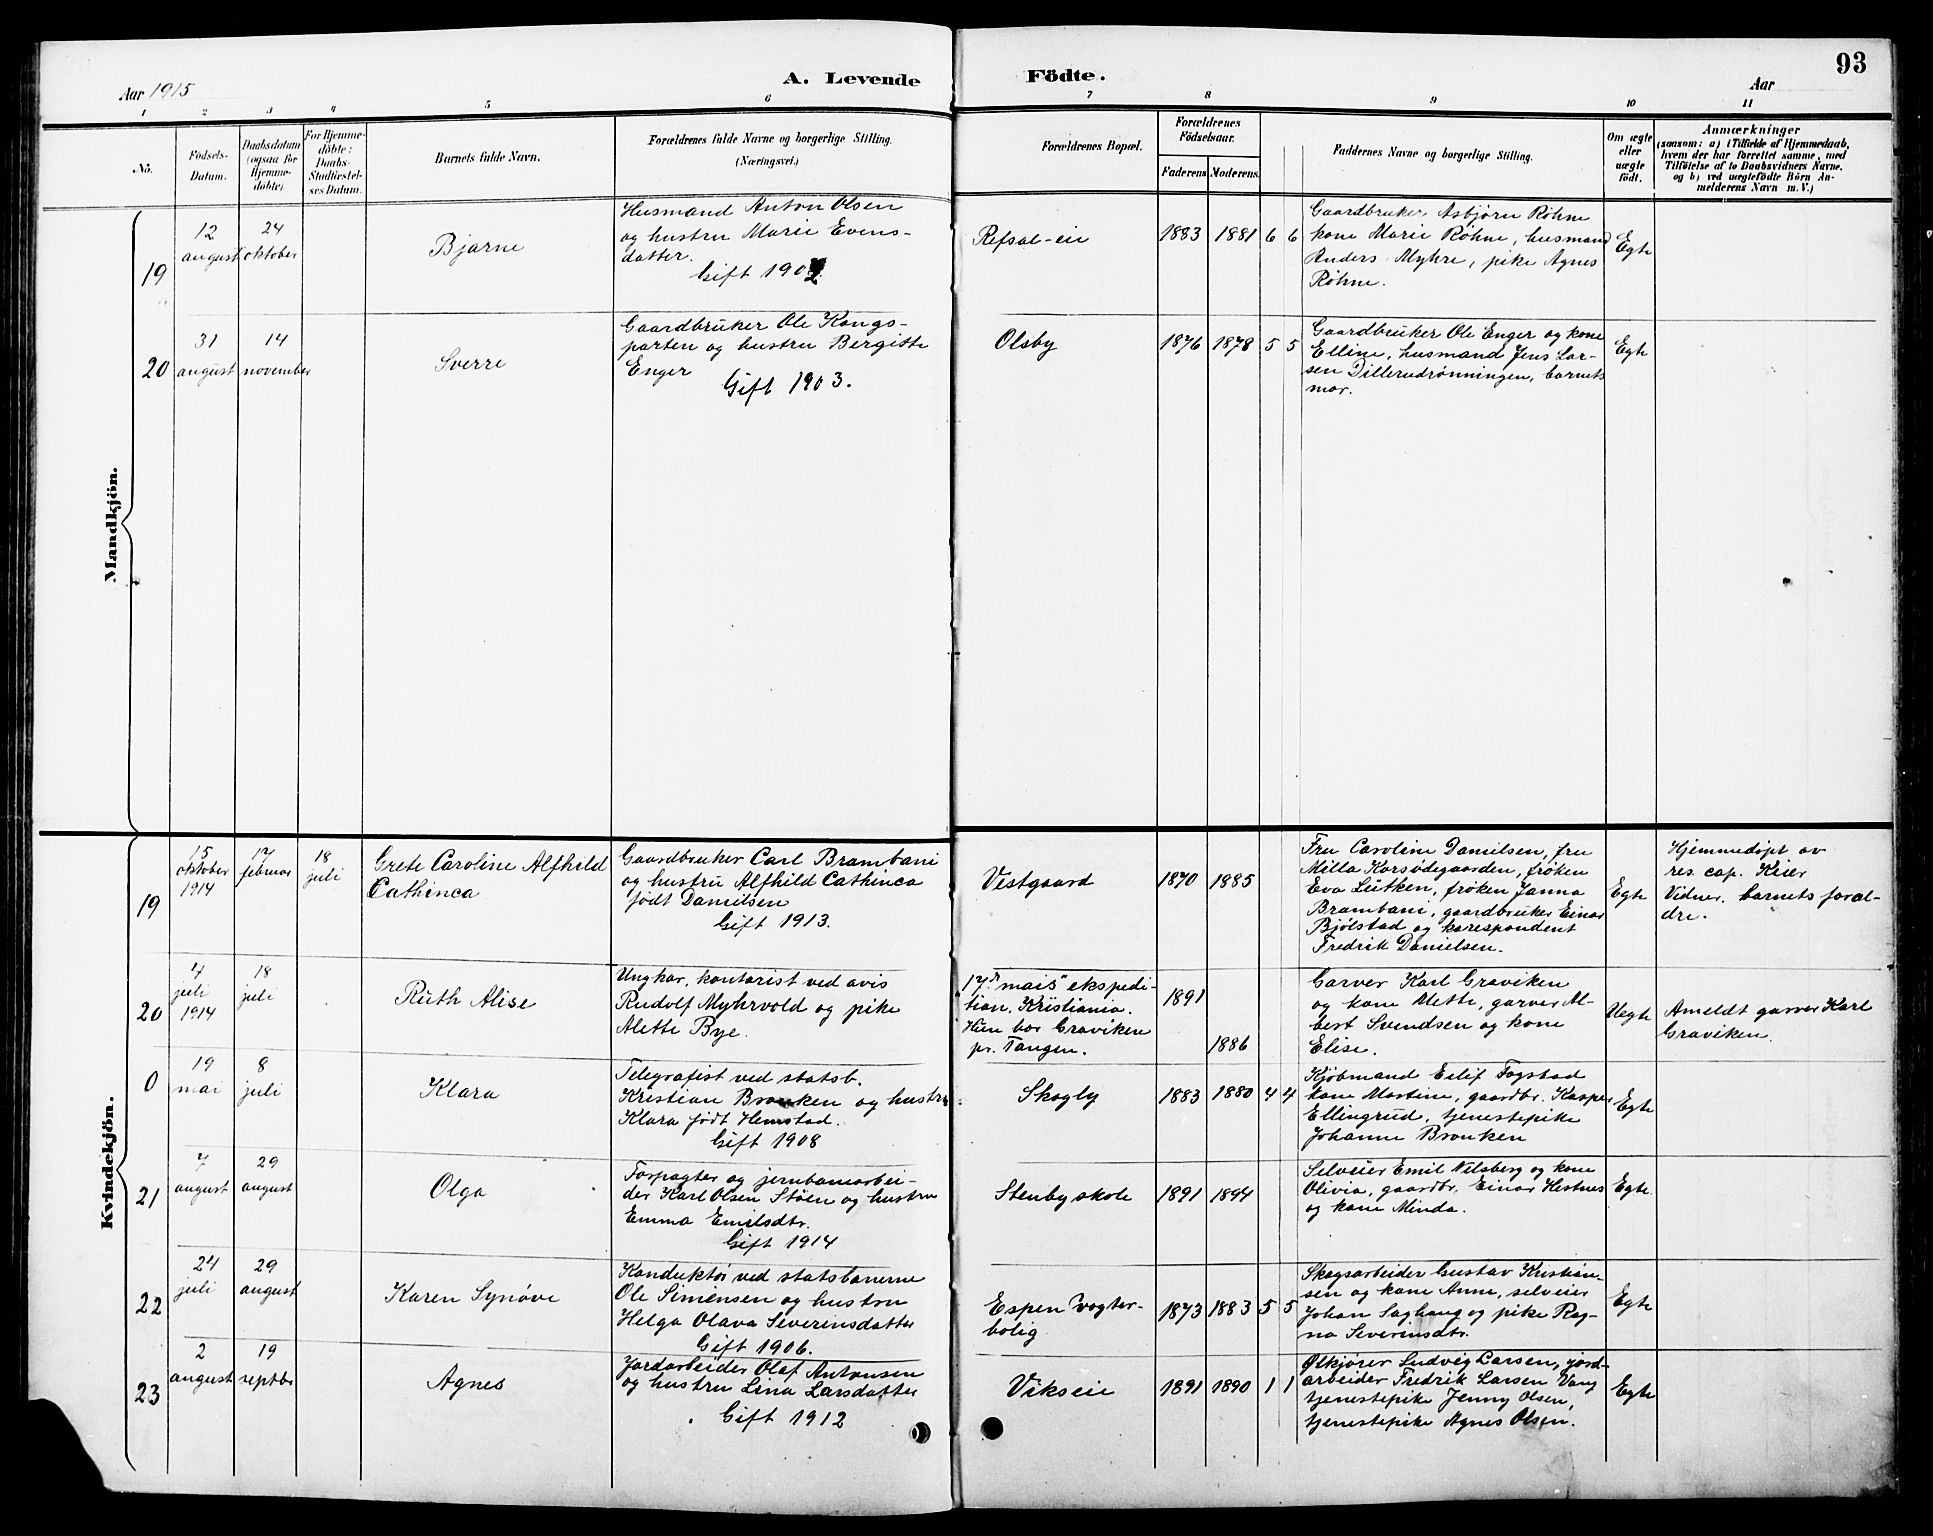 Aar 1915
A. Levende
Födte.
Aar
93
1 2 3 4 5 6 7 8 9 10 11
No.
Födsels-
Datum.
Daabsdatum
(ogsaa for
Hjemme-
döbte).
For Hjemme-
döbte:
Daabs-
Stadfæstel-
ses Datum.
Barnets fulde Navn.
Forældrenes fulde Navne og borgerlige Stilling.
(Næringsvei.)
Forældrenes Bopæl.
Forældrenes
Födselsaar.
Faderens
Moderens
Faddernes Navne og borgerlige Stilling.
Om ægte
eller
uægte
födt.
Anmærkninger
(saasom: a) i Tilfælde af Hjemmedaab,
hvem der har forrettet samme, med
Tilföielse af to Daabsvidners Navne.
og b) ved uægtefödte Börn An-
melderens Navn m. V.)
Mandkjön.
19
12
august
24
oktober
Bjarne
Husmand Anton Olsen
og hustru Marie Evens-
datter.
Gift 1902
Refsal-eie
1883
1881
6 6
Gaardbruker Asbjørn Røhne
kone Marie Røhne, husmand
Anders Myhre, pike Agnes
Røhne.
Egte
20
31
august
14
november
Sverre
Gaardbruker Ole Kongs-
parten og hustru Bergitte
Enger
Gift 1903.
Olsby
1876
1878
5 5
Gaardbruker Ole Enger og kone
Elline, husmand Jens Lar-
sen Dillerudrønningen, barnets
mor.
Egte
Kvindekjön.
19
15
oktober
1914
17
februar
18
juli
Grete Caroline Alfhild
Cathinca
Gaardbruker Carl Brambani
og hustru Alfhild Cathinca
født Danielsen
Gift 1913.
Vestgaard
1870
1885
Fru Caroline Danielsen, fru
Milla Korsødegaarden, frøken
Eva Lütken, frøken Janna
Brambani, gaardbruker Einar
Bjølstad og korespondent
Fredrik Danielsen.
Egte
Hjemmedøpt av
res. cap. Kiær
Vidner, barnets foræl-
dre.
20
4
juli
1914
18
juli
Ruth Alise
Ungkar, kontorist ved avis
Rudolf Myhrvold og pike
Alette Bye.
"17de mais" ekspedi-
tion, Kristiania.
Hun bor Graviken
pr. Tangen.
1891
1886
Garver Karl Graviken
og kone Mette, garver Al-
bert Svendsen og kone
Elise.
Uegte
Anmeldt garver Karl
Graviken.
0
19
mai
8
juli
Klara
Telegrafist ved statsb.
Kristian Bronken og hustru
Klara født Hemstad.
Gift 1908
Skogly
1883
1880
4 4
Kjøbmand Eilif Fogstad
kone Martine, gaardbr. Kasper
Ellingrud, tjenestepike
Johanne Bronken
Egte
21
7
august
29
august
Olga
Forpagter og jernbanearbei-
der Karl Olsen Støen og hustru
Emma Emilsdtr.
Gift 1914
Stenby skole
1891
1894
Selveier Emil Nilsberg og kone
Olivia, gaardbr. Einar Hestnes
og kone Minda.
Egte
22
24
juli
29
august
Karen Synøve
Konduktør ved statsbanerne
Ole Simensen og hustru
Helga Olava Severinsdatter
Gift 1906.
Espen vogter-
bolig
1873
1883
5 5
Skogsarbeider Gustav Kristian-
sen og kone Anne, selveier
Johan Saghaug og pike Rag-
na Severinsdtr.
Egte
23
2
august
19
septbr
Agnes
Jordarbeider Olaf Antonsen
og hustru Lina Larsdatter
Gift 1912
Vikseie
1891
1890
1 1
Ølkjører Ludvig Larsen, jord-
arbeider Fredrik Larsen Vang
tjenestepike Jenny Olsen,
tjenestepike Agnes Olsen.
Egte